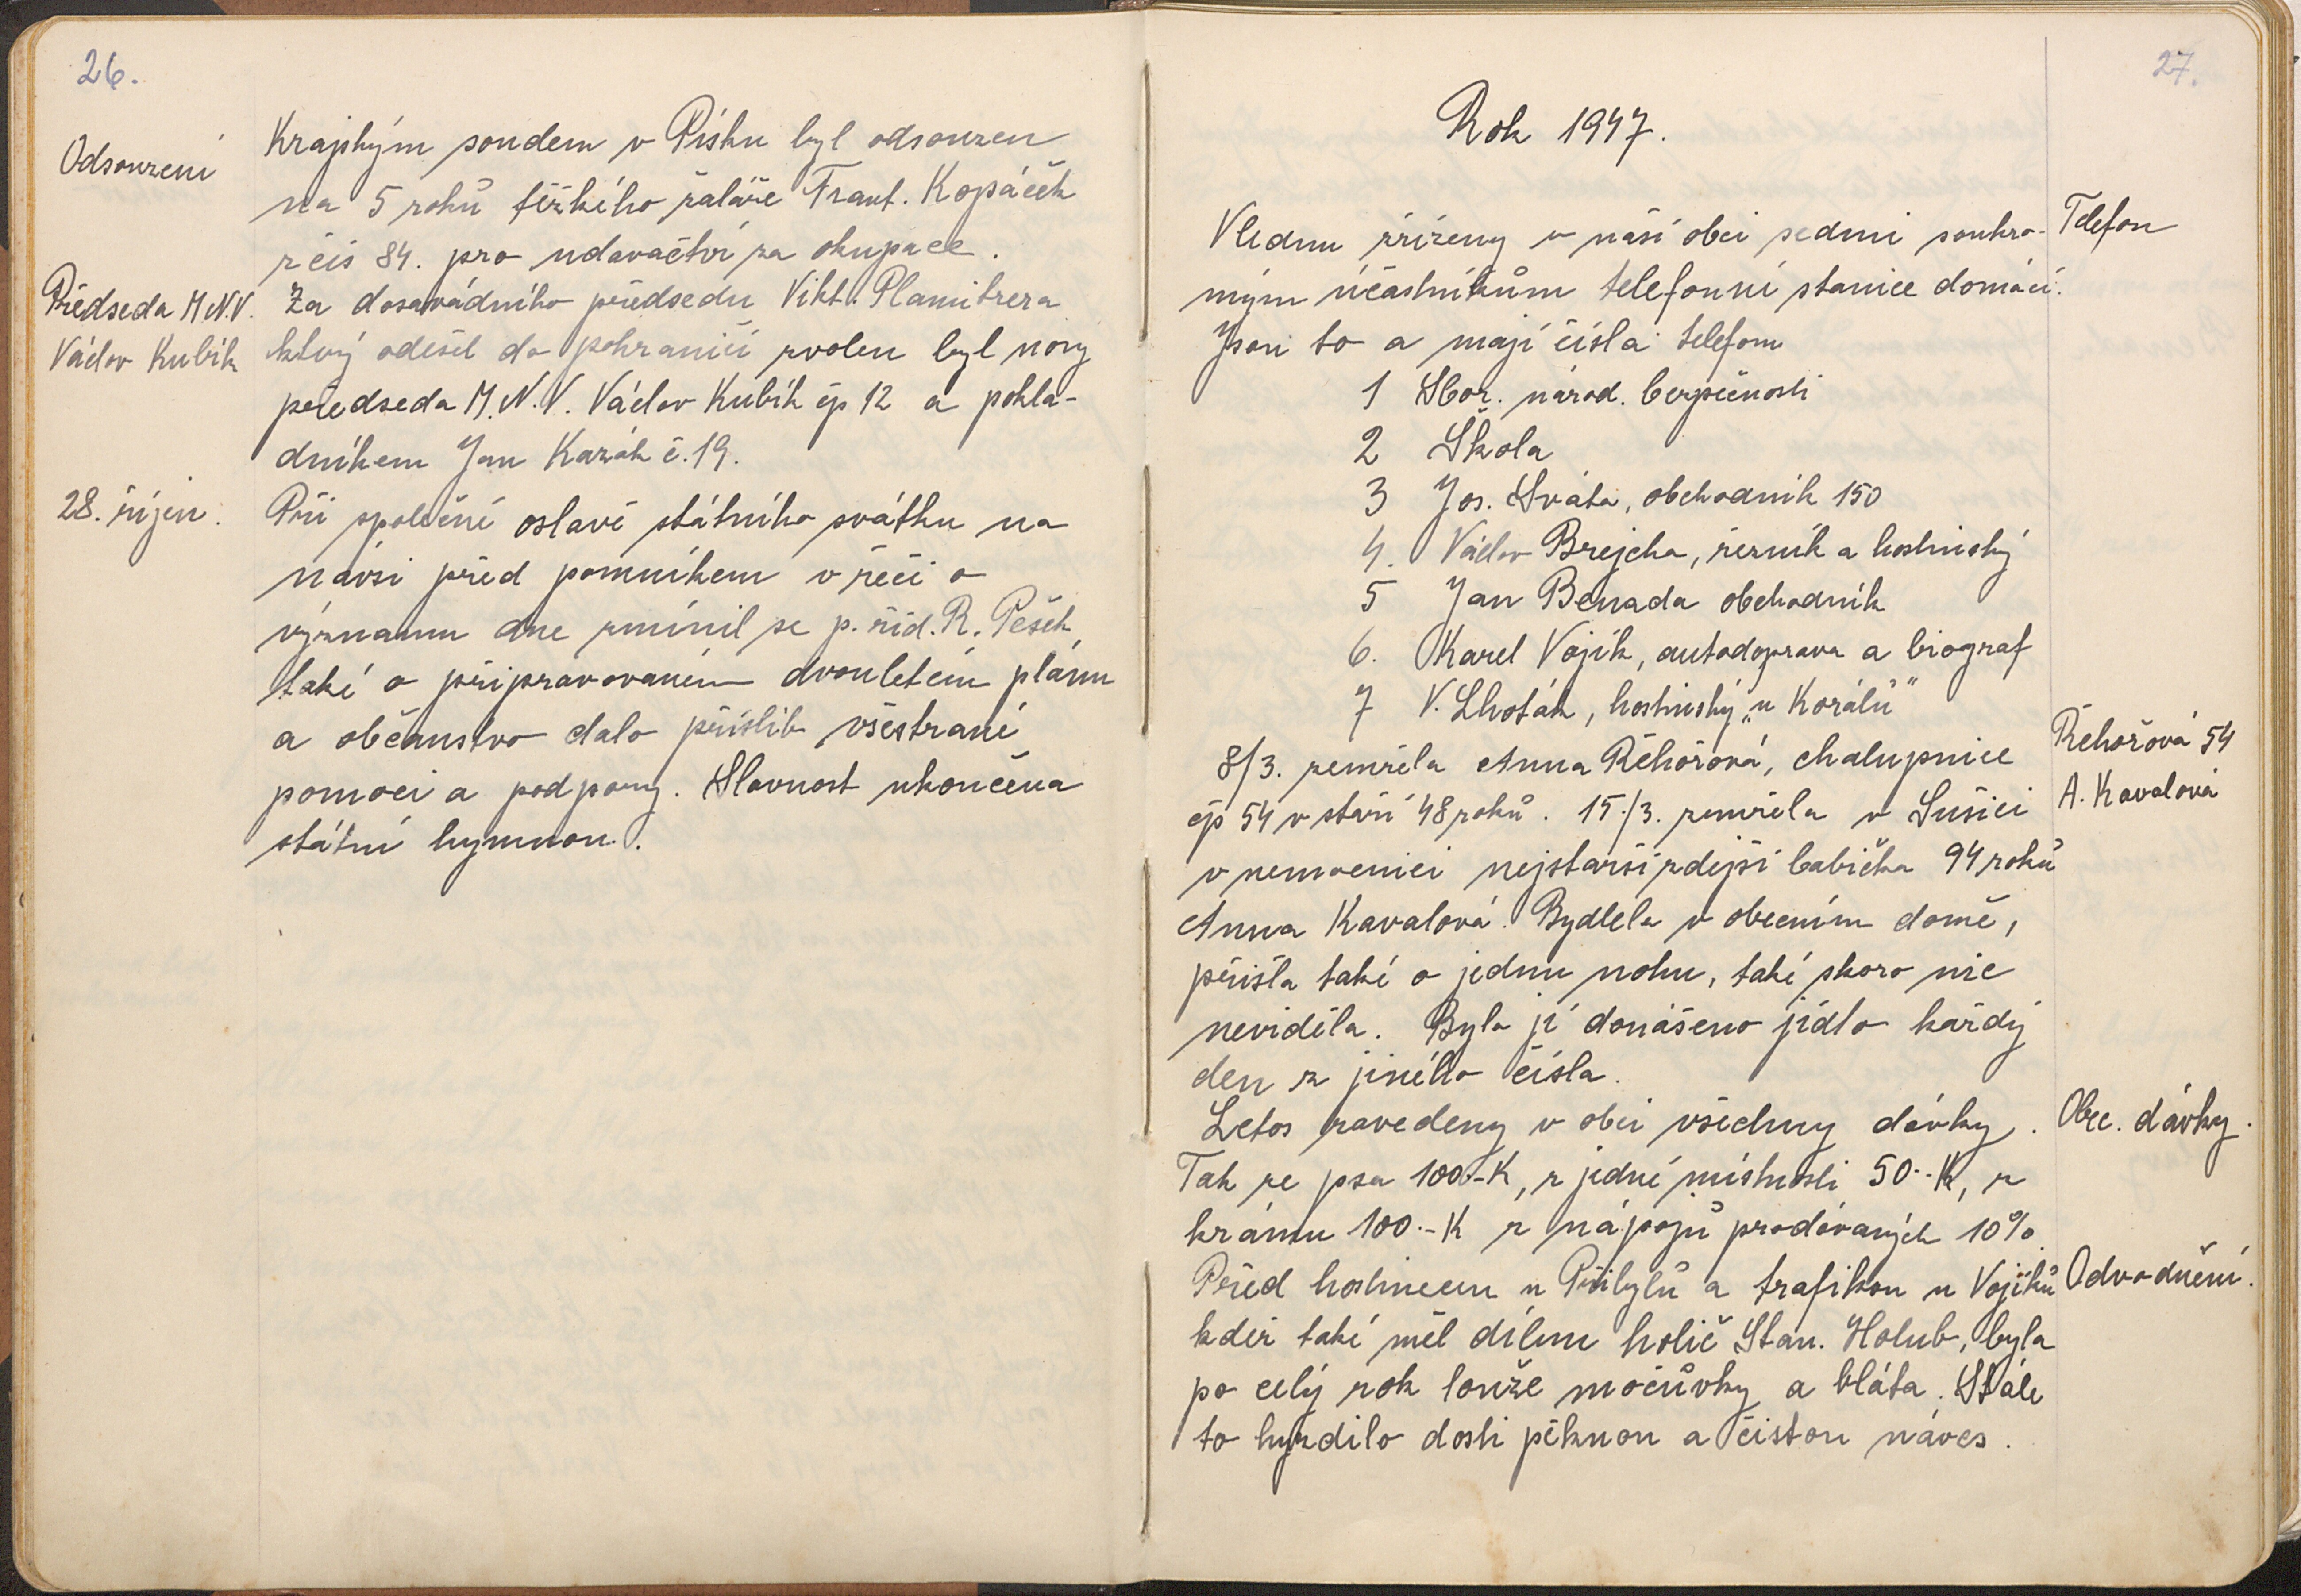 26.
Odsouzení
Krajským soudem v Písku byl odsouzen
na 5 roků těžkého žaláře Frant. Kopáček
z čís 84. pro udavačtví za okupace.
Předseda M.N.V.
Václav Kubík
Za dosavádního předsedu Vikt. Plamitzera
který odešel do pohraničí zvolen byl nový
předseda M.N.V. Václav Kubík čp 12 a pokla-
dníkem Jan Kazák č.19.
28. říjen.
Při společné oslavě státního svátku na
návsi před pomníkem v řeči o
významu dne zmínil se p. říd. R. Pešek
také o připravovaném dvouletém plánu
a občanstvo dalo příslib všestrané
pomoci a podpory. Slavnost ukončena
státní hymnou.
27.
Rok 1947.
Telefon
V lednu zřízeny v naší obci sedmi soukro-
mým účastníkům telefonní stanice domácí.
Jsou to a mají čísla telefonu
1 Sbor. národ. bezpečnosti
2 Škola
3 Jos. Sváta, obchodník 150
4. Václav Brejcha, řezník a hostinský
5 Jan Benada obchodník
6. Karel Vojík, autodoprava a biograf
7 V. Lhoták, hostinský „u Korálů"
Řehořová 54
A. Kavalová
8/3. zemřela Anna Řehořová, chalupnice
čp 54 v stáří 48 roků. 15./3. zemřela v Sušici
v nemocnici nejstarší zdejší babička 94 roků
Anna Kavalová. Bydlela v obecním domě,
přišla také o jednu nohu, také skoro nic
neviděla. Bylo jí donášeno jídlo každý
den z jiného čísla.
Obec. dávky.
Letos zavedeny v obci všechny dávky.
Tak ze psa 100.-K, z jedné místnosti 50.-K, z
krámu 100.-K z nápojů prodávaných 10%.
Odvodnění.
Před hostincem u Přibylů a trafikou u Vojíků
kdež také měl dílnu holič Stan. Holub, byla
po celý rok louže močůvky a bláta. Stále
to hyzdilo dosti pěknou a čistou náves.